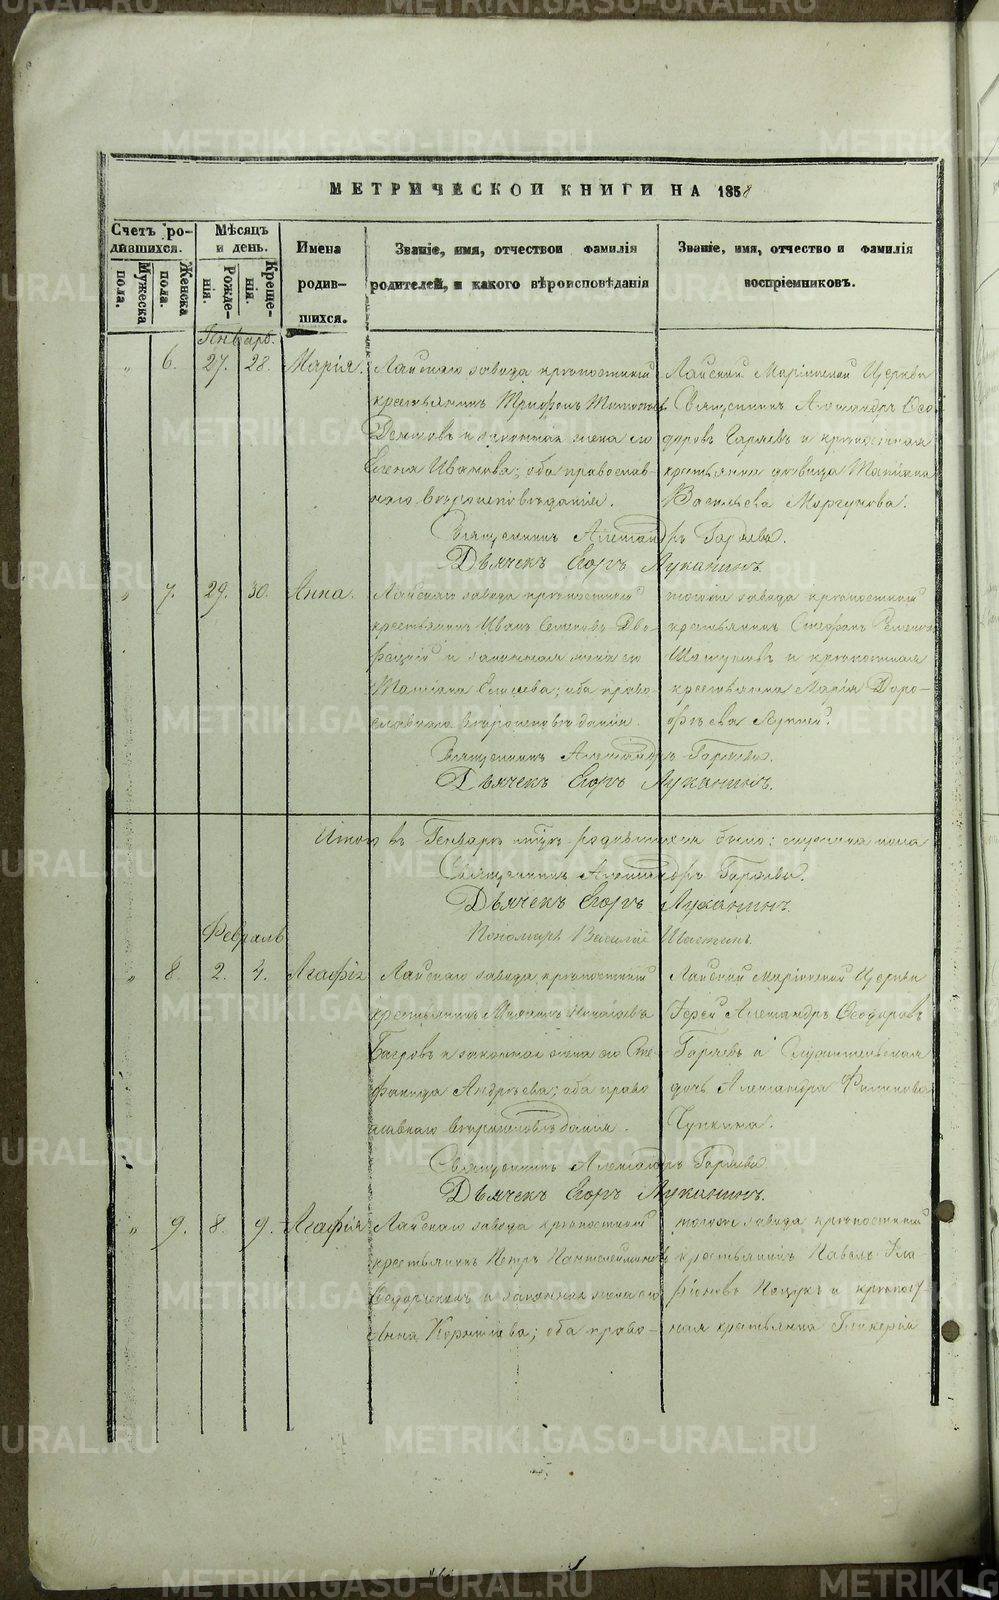 МЕТРИЧЕСКОИ КНИГИ НА 1858
Счетъ ро-
дившихся.
Мужеска
пола.
Женска
пола.
Мѣсяцъ
и день.
Рожде-
нія.
Креще-
нія.
Имена
родив-
шихся.
Званіе, имя, отчествои фамилія
родителей, и какого вѣроисповѣданія
Званіе, имя, отчество и фамилія
воспріемниковъ.
Январь.
„ 6. 27. 28. Марія.
Лайскаго завода крѣпостный
крестьянинъ Трифонъ
и законная жена его
Елена Иванова; оба православ-
наго вѣроисповѣданія.
Лайской Маріинской Церкви
Священникъ Александръ Ѳео-
доровъ Гаряевъ и крѣпостная
крестьянка девица Татіана
Васильева Моргунова.
Священникъ Александръ Гаряевъ.
Дьячекъ Егоръ Луканинъ.
„ 7. 29. 30. Анна.
Лайскаго завода крѣпостный
крестьянинъ Иванъ Семеновъ
и законная жена его
Татіана Елисеева; оба право-
славнаго вѣроисповѣданія.
тогоже завода крѣпостный
крестьянинъ Стефанъ
и крѣпостная
крестьянка Марія Доро-
фѣева
Священникъ Александръ Гаряевъ.
Дьячекъ Егоръ Луканинъ.
Итого въ Генварѣ м-цѣ родившихся было: женска пола
Священникъ Александръ Гаряевъ.
Дьячекъ Егоръ Луканинъ.
Пономарь Василій
Февраль
„ 8. 2. 4. Агафія
Лайскаго завода крѣпостный
крестьянинъ Николаевъ
Багровъ и законная жена его Сте-
фанида Андрѣева; оба право
славнаго вѣроисповѣданія.
Лайской Маріинской Церкви
Іерей Александръ Ѳеодоровъ
Гаряевъ и Служительская
дочь Александра Филипова
Чупкина.
Священникъ Александръ Гаряевъ
Дьячекъ Егоръ Луканинъ.
„ 9. 8. 9. Агафія
Лайскаго завода крѣпостный
крестьянинъ Петръ Пантелеймоновъ
и законная жена его
Анна Корнилова; оба право-
тогоже завода крѣпостный
крестьянинъ Павелъ Ила
ріоновъ и крѣпост-
ная крестьянка Гликерія
METRIKI.GASO-URAL.RU